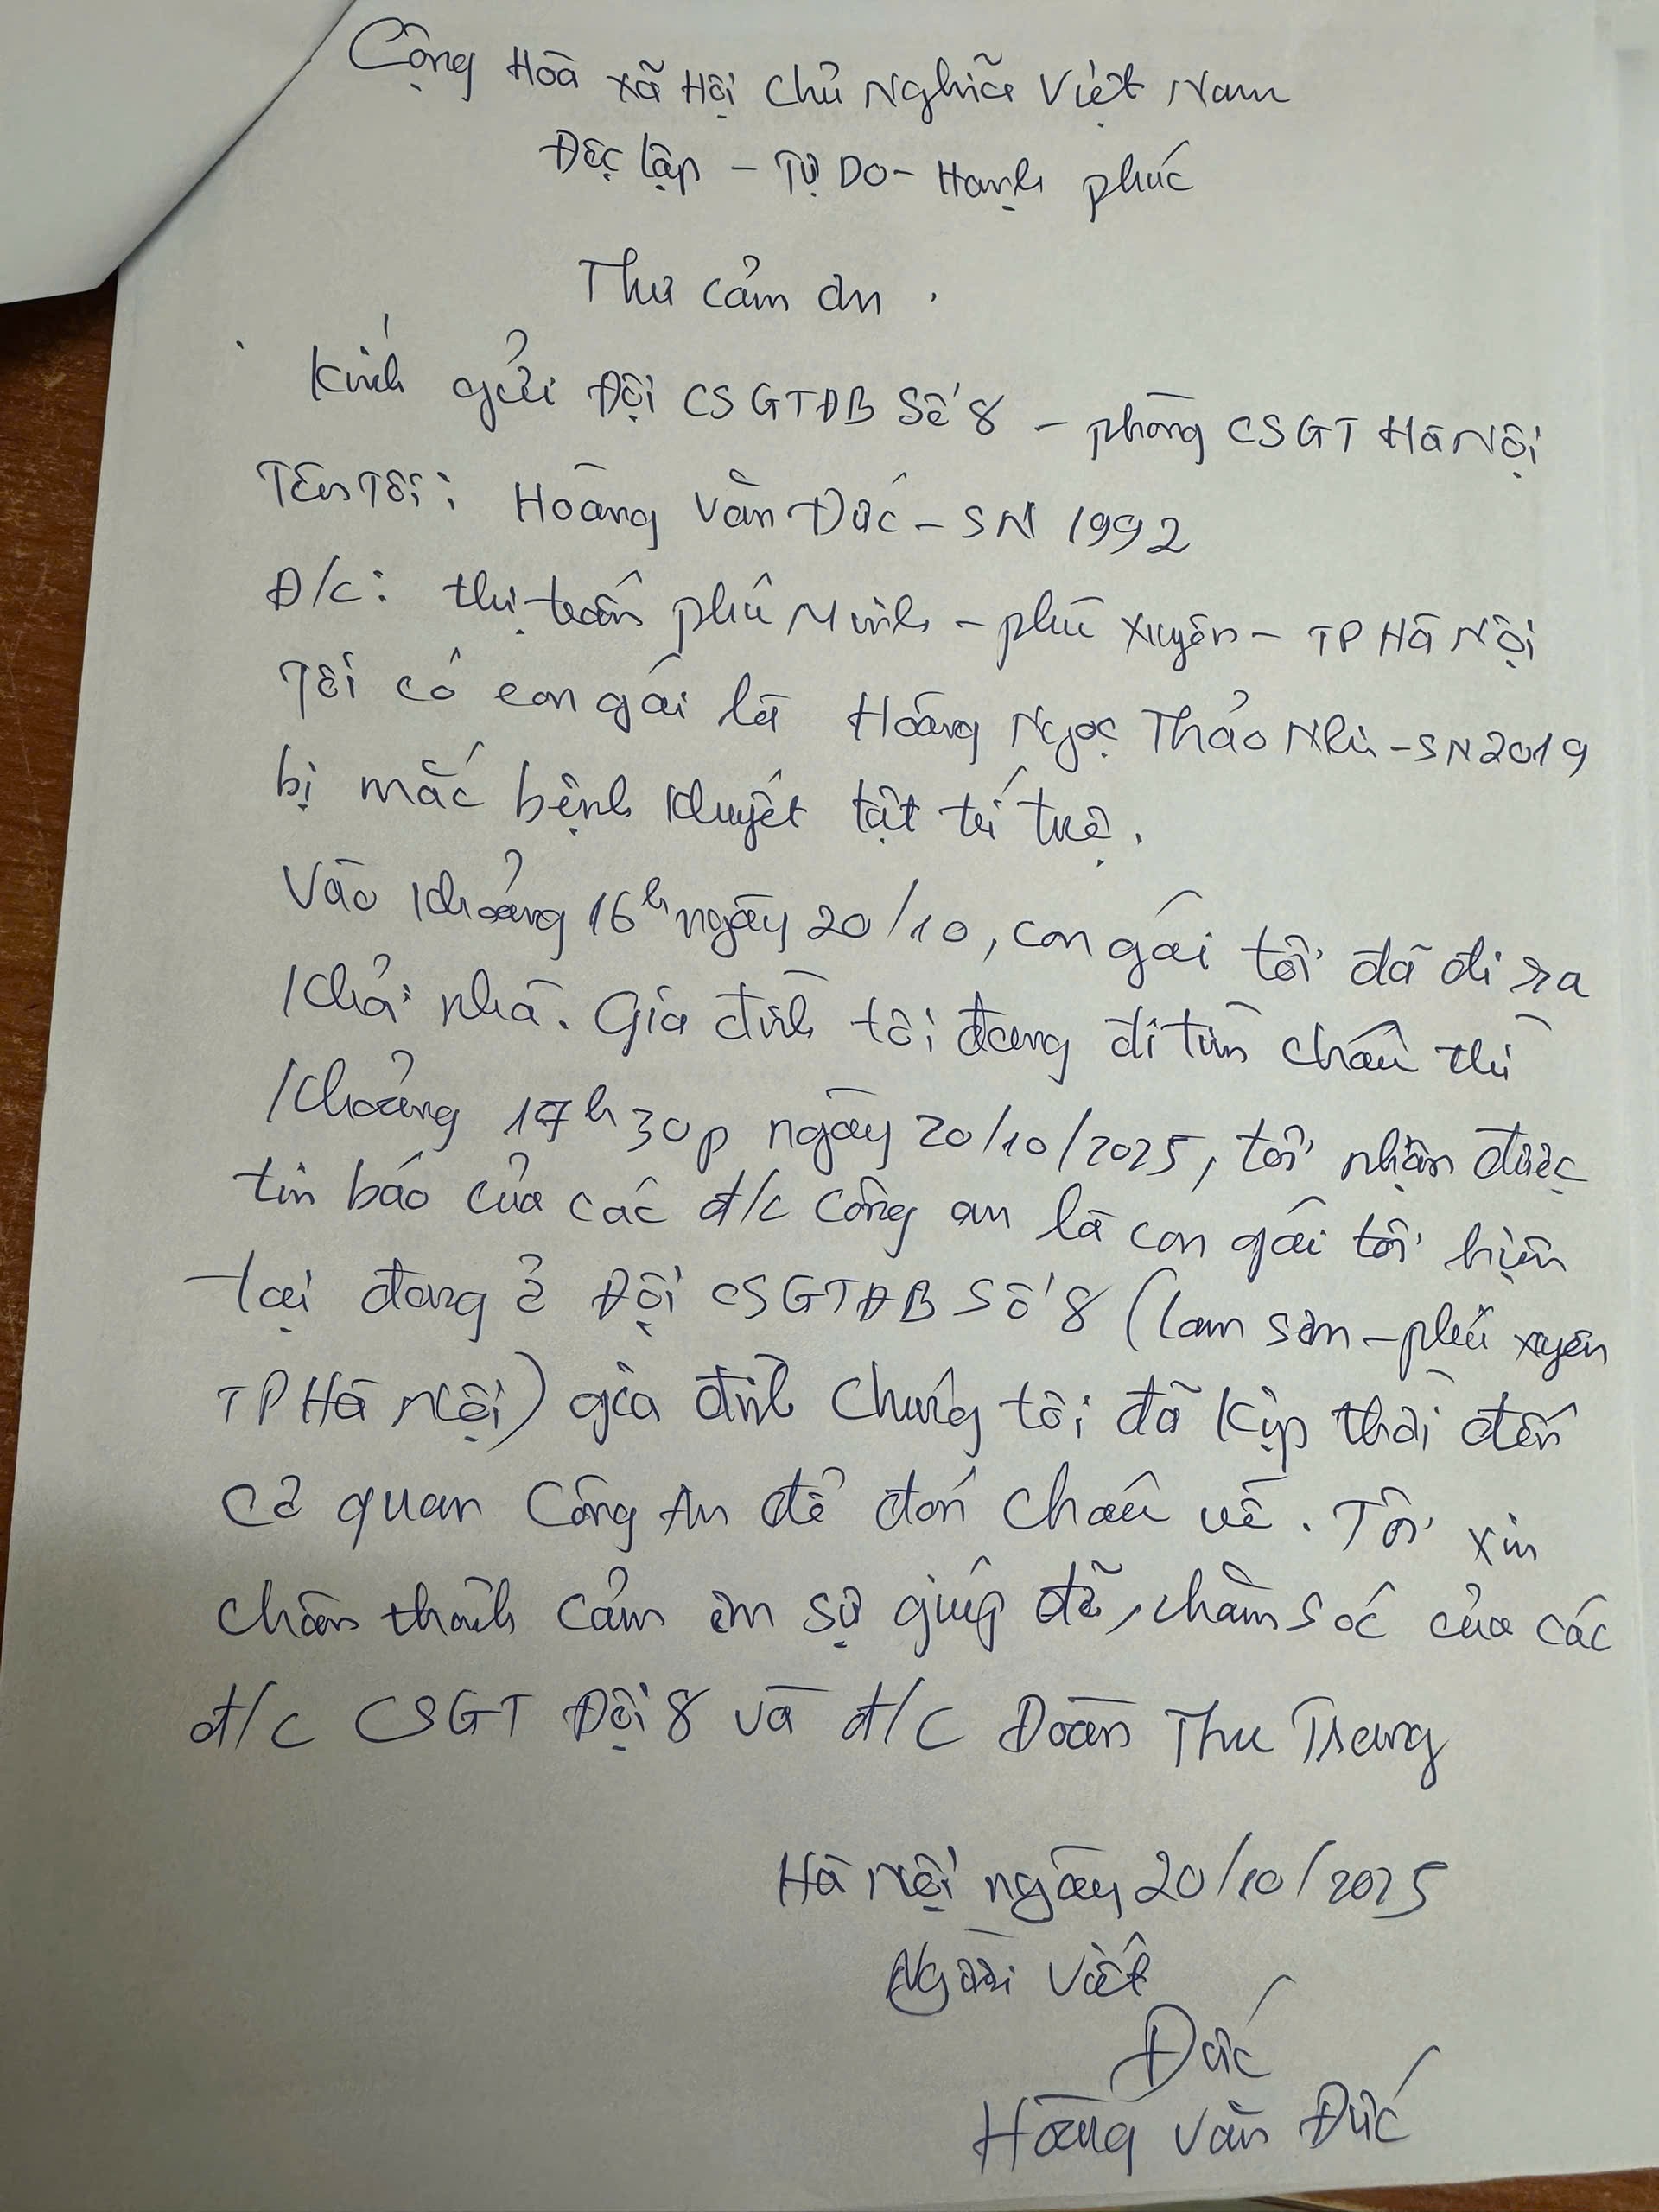 Cộng Hòa xã Hội Chủ Nghĩa Việt Nam
Độc lập - Tự Do - Hạnh phúc
Thư cảm ơn.
Kính gửi Đội CSGTĐB Số 8 - phòng CSGT Hà Nội
Tên Tôi: Hoàng Văn Đức - SN 1992
Đ/c: thị trấn phú Minh - phú Xuyên - TP Hà Nội
Tôi có con gái là Hoàng Ngọc Thảo Nhi - SN 2019
bị mắc bệnh khuyết tật trí tuệ.
Vào khoảng 16h ngày 20/10, con gái tôi đã đi ra
khỏi nhà. Gia đình tôi đang đi tìm cháu thì
khoảng 17h30p ngày 20/10/2025, tôi nhận được
tin báo của các đ/c công an là con gái tôi hiện
tại đang ở Đội CSGTĐB Số 8 (lam sơn - phú xuyên
TP Hà Nội) gia đình chúng tôi đã kịp thời đến
cơ quan Công An để đón cháu về. Tôi xin
chân thành cảm ơn sự giúp đỡ, chăm sóc của các
đ/c CSGT Đội 8 và đ/c Đoàn Thu Trang
Hà Nội ngày 20/10/2025
Người viết
Đức
Hoàng Văn Đức